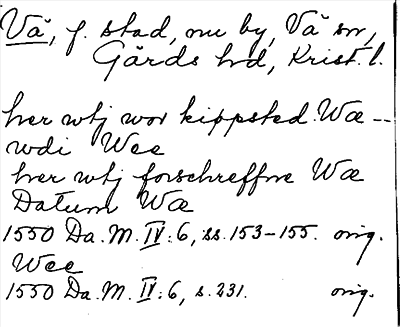 Vä, f. stad, nu by, Vä sn,
Gärds hd, Krist. l.
her wtj wor kippsted. Wæ --
wdi Wee
her wtj forschreffne Wæ
Datum Wæ
1550 Da. M. IV: 6, ss. 153-155. orig.
Wee
1550 Da. M. IV: 6, s. 231. orig.